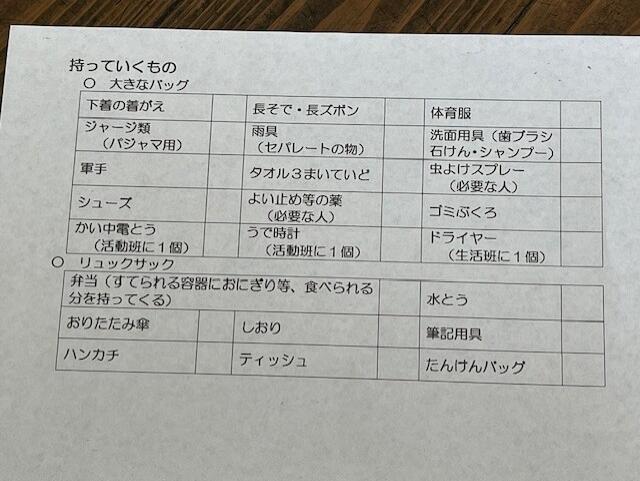 持っていくもの
○ 大きなバッグ
下着の着がえ 長そで・長ズボン 体育服
ジャージ類
（パジャマ用）
雨具
（セパレートの物）
洗面用具（歯ブラシ
石けん・シャンプー）
軍手 タオル３まいていど
虫よけスプレー
（必要な人）
シューズ
よい止め等の薬
（必要な人）
ゴミぶくろ
かい中電とう
（活動班に１個）
うで時計
（活動班に１個）
ドライヤー
（生活班に１個）
○ リュックサック
弁当（すてられる容器におにぎり等、食べられる
分を持ってくる）
水とう
おりたたみ傘 しおり 筆記用具
ハンカチ ティッシュ たんけんバッグ